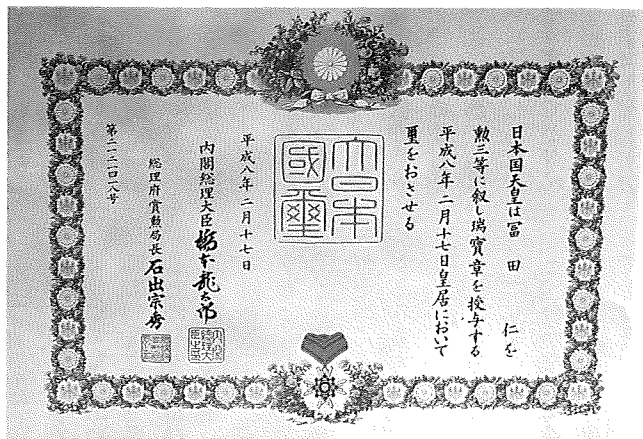 日本国天皇は冨田仁を
勲三等に叙し瑞寶章を授与する
平成八年二月十七日皇居において
璽をおさせる
大日本國璽
平成八年二月十七日
内閣総理大臣 橋本龍太郎
総理府賞勲局長 石出宗秀
第二一二四一八号